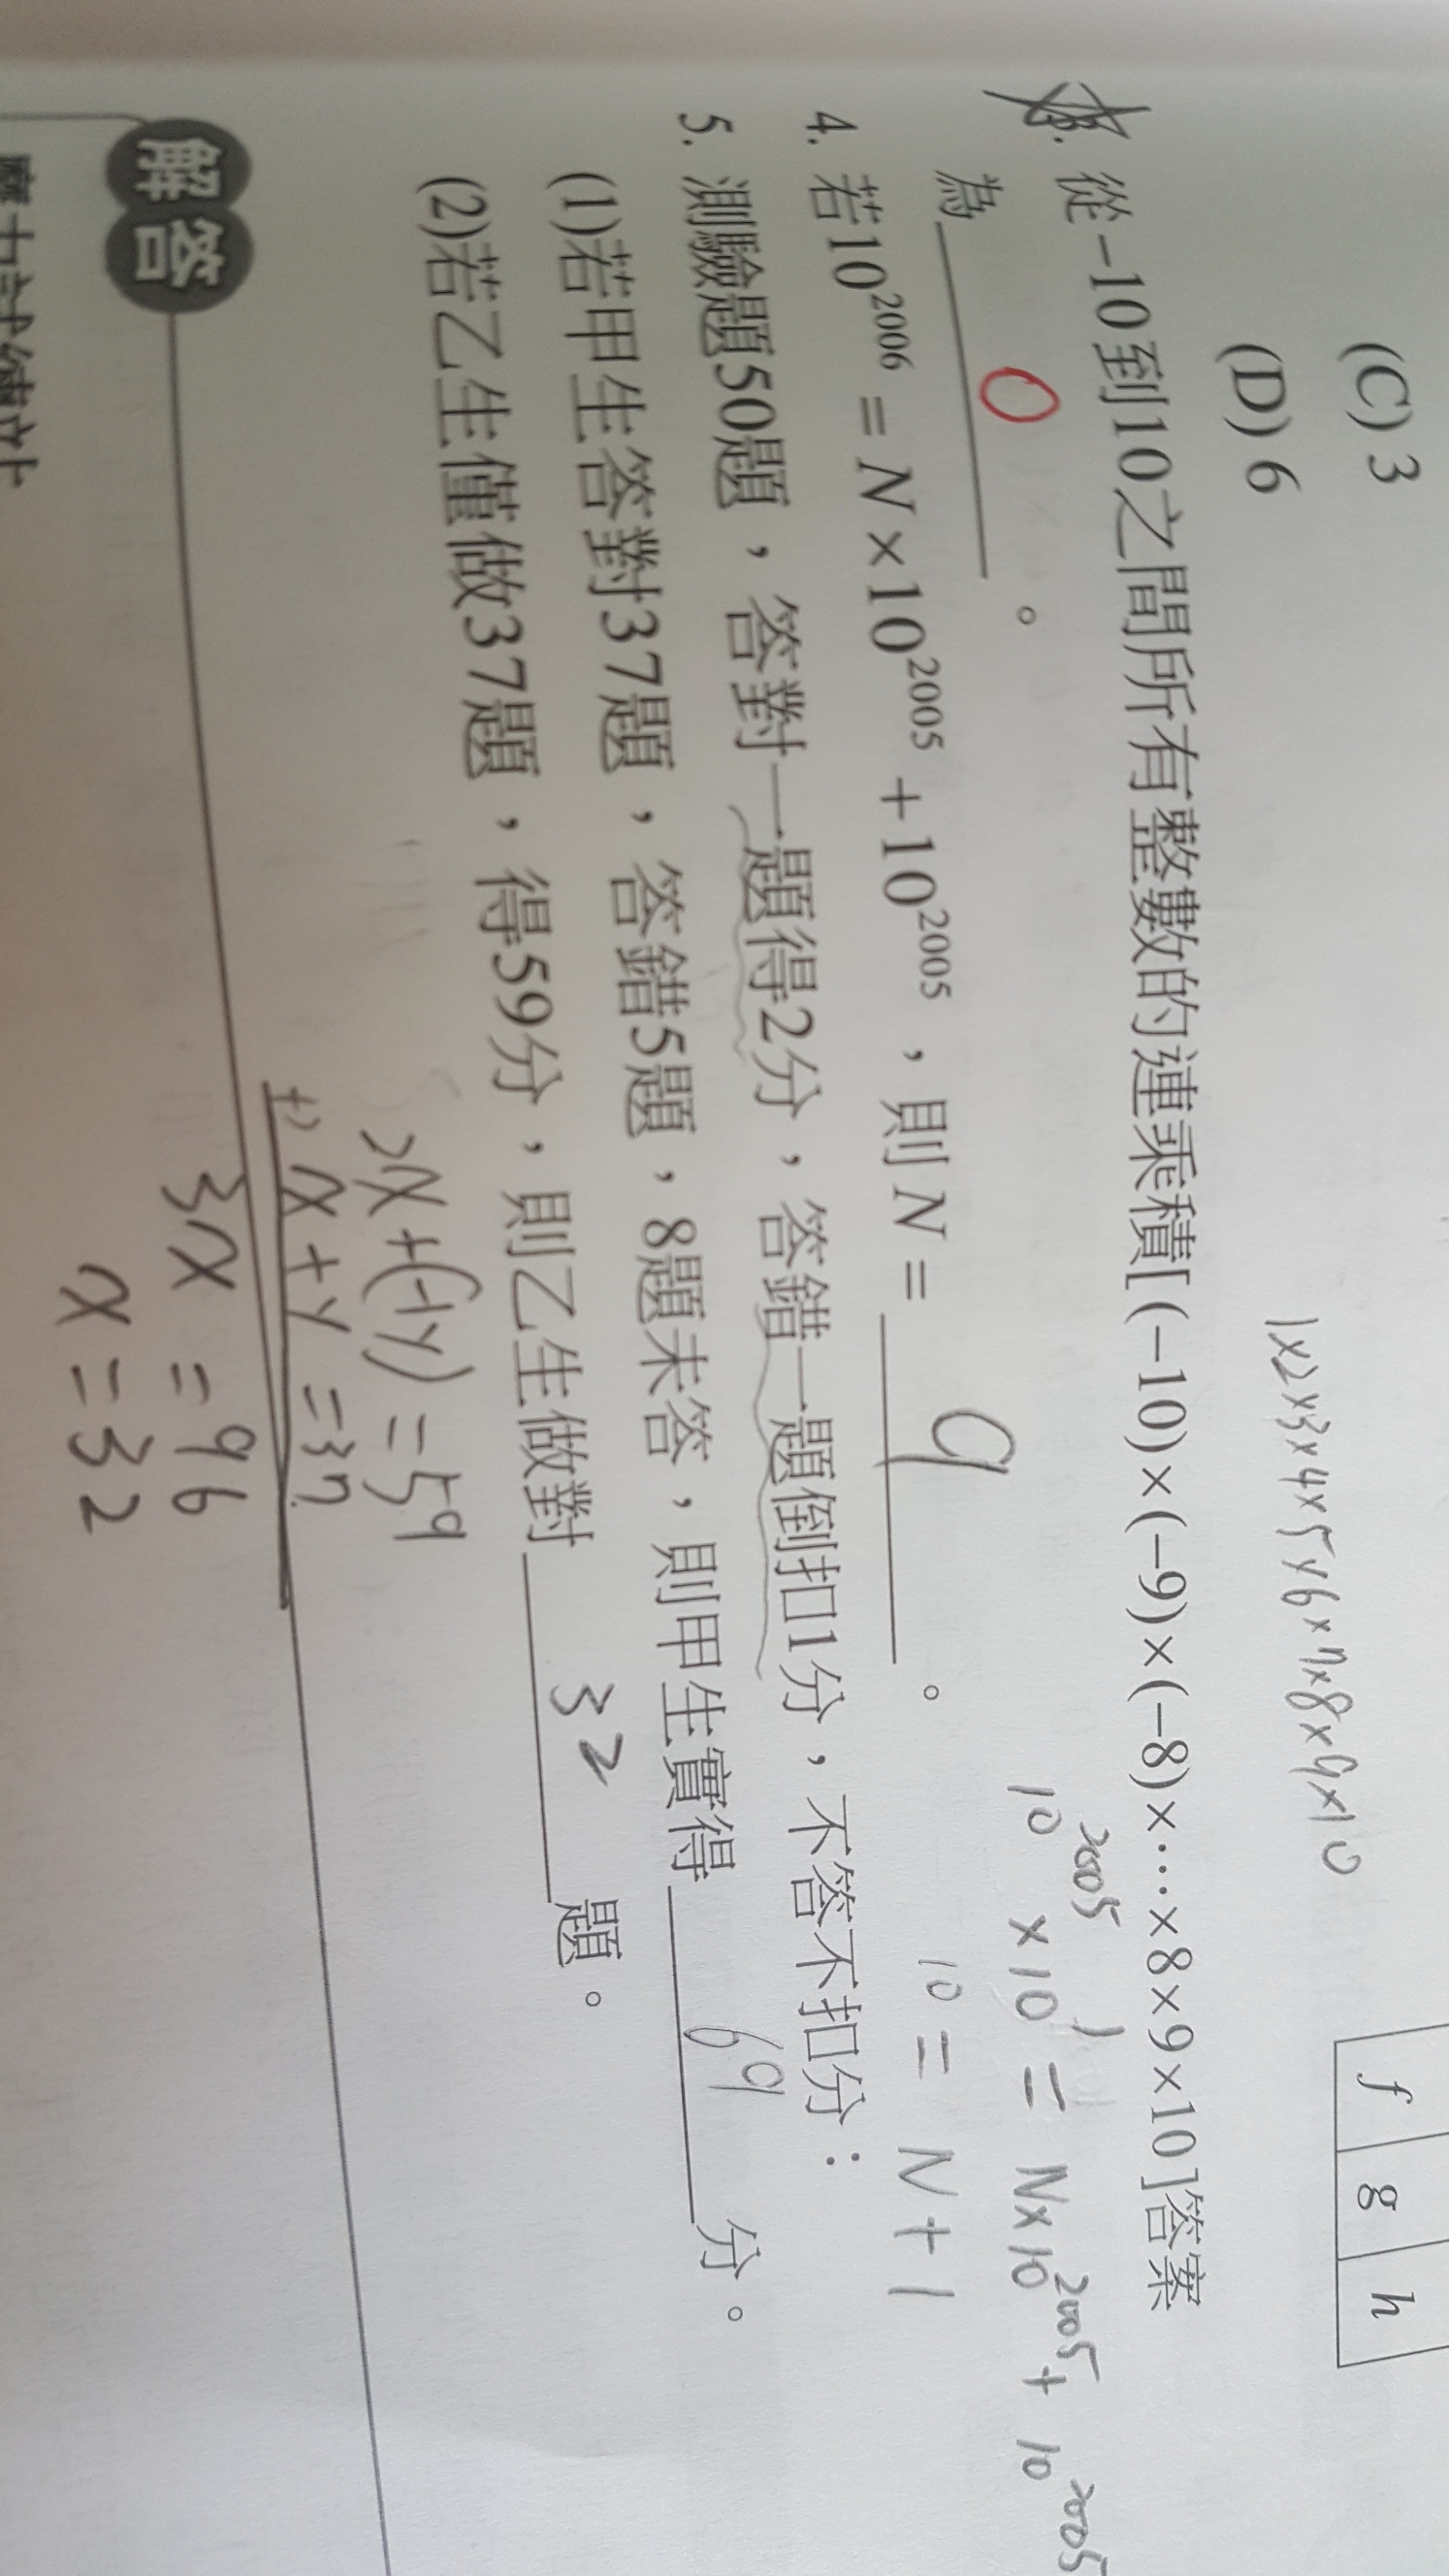 (C) 3
(D) 6
f g h
1×2×3×4×5×6×7×8×9×10
3. 從-10到10之間所有整數的連乘積[(-10)×(-9)×(-8)×…×8×9×10]答案
為 0 。
10²⁰⁰⁵ × 10¹ = N×10²⁰⁰⁵ + 10²⁰⁰⁵
4. 若10²⁰⁰⁶ = N×10²⁰⁰⁵ +10²⁰⁰⁵ ,則 N = 9 。
10 = N + 1
5. 測驗題50題,答對一題得2分,答錯一題倒扣1分,不答不扣分:
(1)若甲生答對37題,答錯5題,8題未答,則甲生實得 69 分。
(2)若乙生僅做37題,得59分,則乙生做對 32 題。
2x+(-1y) = 59
+) x + y = 37
3x = 96
x = 32
解答